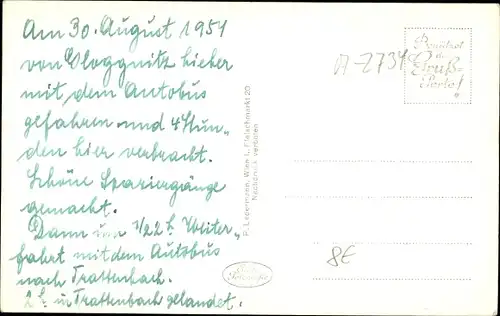 Am 30. August 1954
von Gloggnitz hieher
mit dem Autobus
gefahren und 4 Stun„
den hier verbracht.
Schöne Spaziergänge
gemacht.
Dann um 1/2 2 h. Weiter„
fahrt mit dem Autobus
nach Trattenbach.
2 h. in Trattenbach gelandet.
P. Ledermann, Wien I., Fleischmarkt 20
Nachdruck verboten
A-2734
Benützet
Gruß-
Porto!
8€